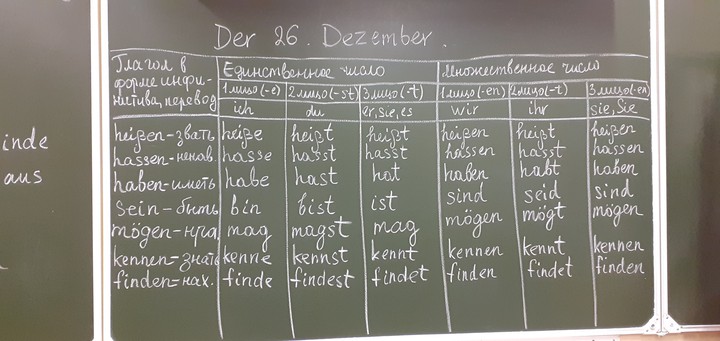 Der 26. Dezember.
Глагол в форме инфинитива, перевод Единственное число Множественное число
1 лицо (-e) 2 лицо (-st) 3 лицо (-t) 1 лицо (-en) 2 лицо (-t) 3 лицо (-en)
ich du er, sie, es wir ihr sie, Sie
heißen - звать heiße heißt heißt heißen heißt heißen
hassen - ненав. hasse hasst hasst hassen hasst hassen
haben - иметь habe hast hat haben habt haben
sein - быть bin bist ist sind seid sind
mögen - нра. mag magst mag mögen mögt mögen
kennen - знать kenne kennst kennt kennen kennt kennen
finden - нах. finde findest findet finden findet finden
inde
aus